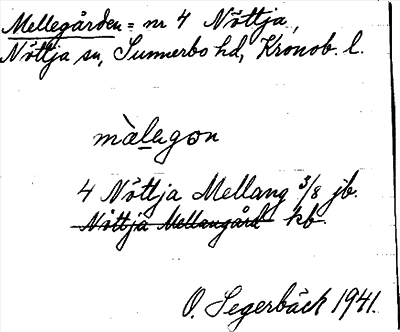 Mellegården = nr 4 Nöttja,
Nöttja sn, Sunnerbo hd, Kronob. l.
màlegon
4 Nöttja Mellang 3/8 jb.
Nöttja Mellangård kb.
O. Segerbäck 1941.